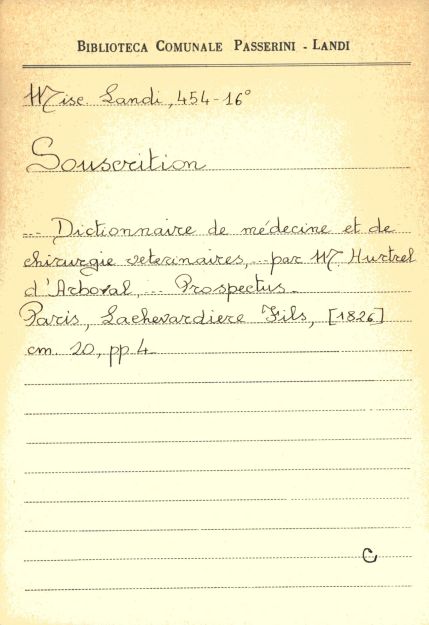 BIBLIOTECA COMUNALE PASSERINI - LANDI
Misc. Landi, 454-16°
Souscrition
... Dictionnaire de médecine et de
chirurgie veterinaires, ... par M. Hurtrel
d'Arboval, ... Prospectus.
Paris, Lachevardiere Fils, [1826]
cm. 20, pp. 4.
C